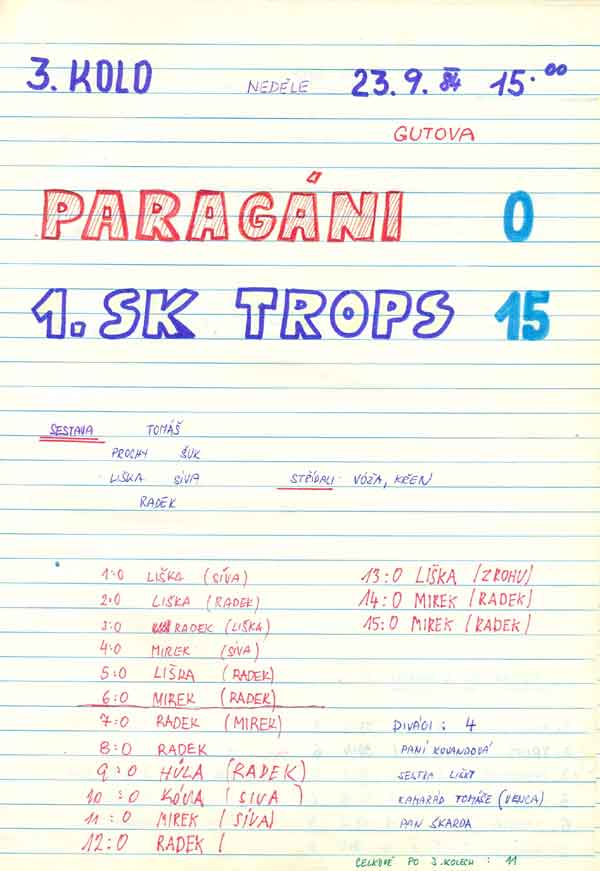 3. KOLO NEDĚLE 23.9.84 15.00
GUTOVA
PARAGÁNI 0
1. SK TROPS 15
SESTAVA TOMÁŠ
PROCHY ŠUK
LIŠKA SÍVA STŘÍDALI VÓŽA, KŘEN
RADEK
1:0 LIŠKA (SÍVA)
2:0 LIŠKA (RADEK)
3:0 RADEK (LIŠKA)
4:0 MIREK (SÍVA)
5:0 LIŠKA (RADEK)
6:0 MIREK (RADEK)
7:0 RADEK (MIREK)
8:0 RADEK
9:0 HÚLA (RADEK)
10:0 KÓVA (SIVA)
11:0 MIREK (SÍVA)
12:0 RADEK (
13:0 LIŠKA (ZROHU)
14:0 MIREK (RADEK)
15:0 MIREK (RADEK)
DIVÁCI : 4
PANÍ KOVANDOVÁ
SESTRA LIŠKY
KAMARÁD TOMÁŠE (VENCA)
PAN ŠKARDA
CELKOVĚ PO 3. KOLECH : 11